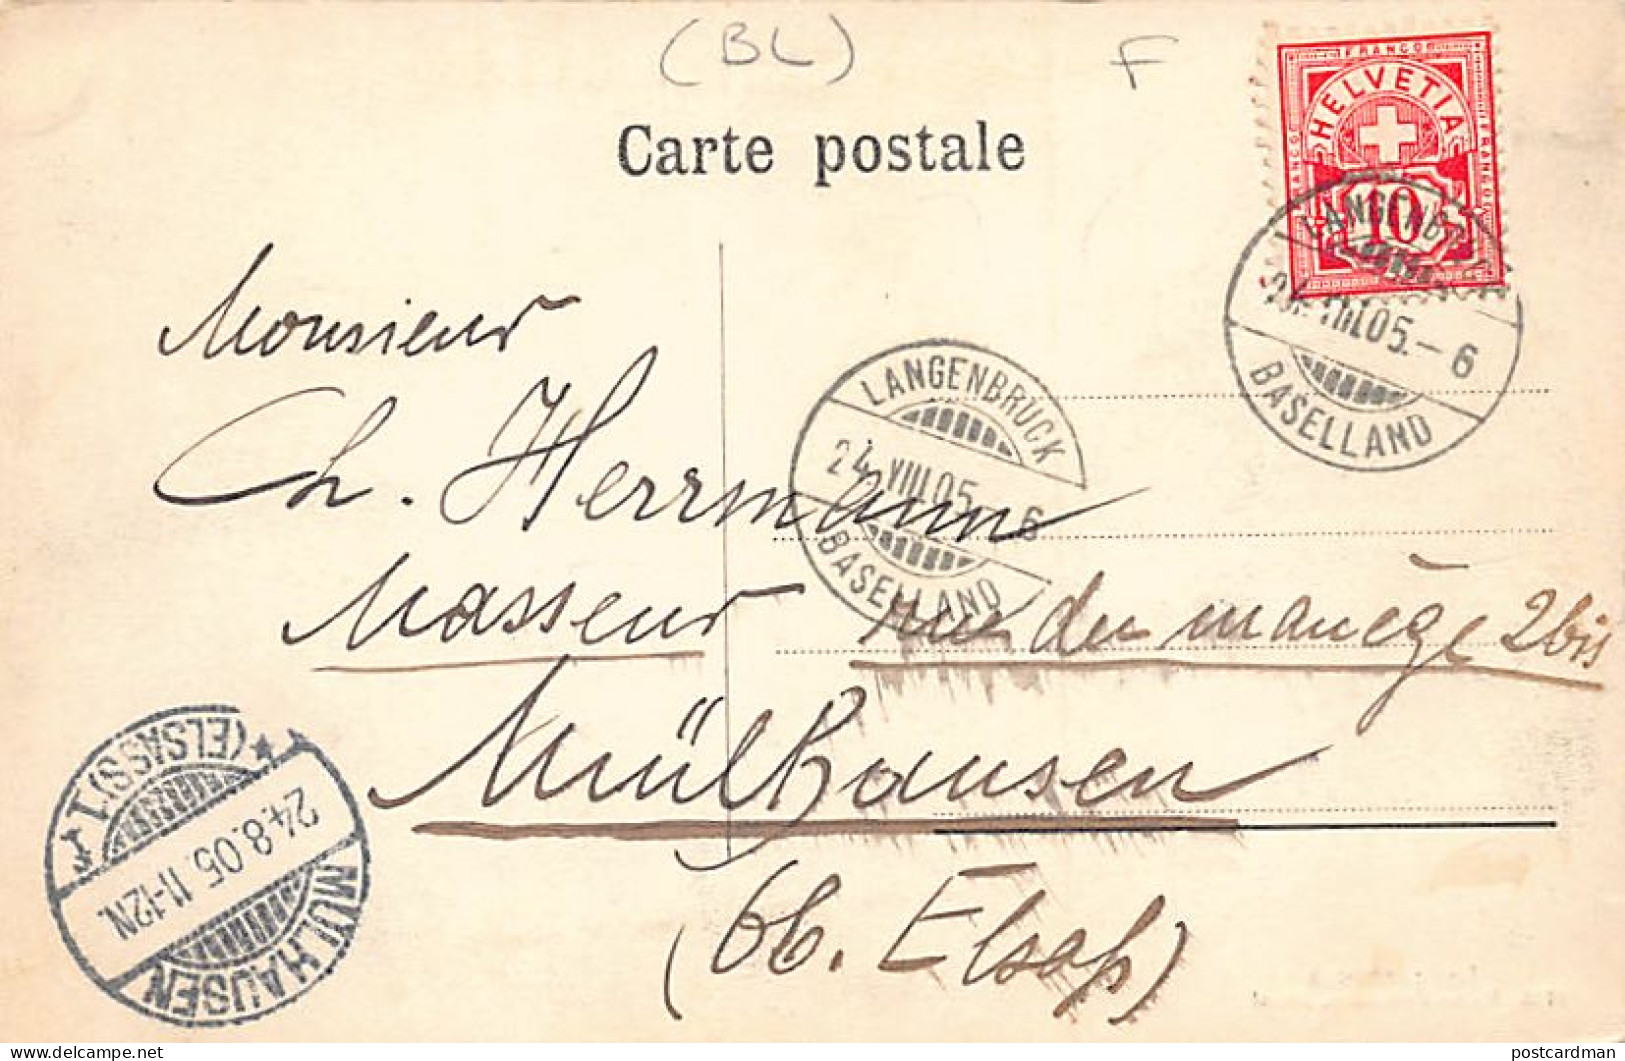 (BL)
F
Carte postale
FRANCO
HELVETIA
FRANCO
FRANCO
10
LANGENBRUCK
24.VIII.05.–6
BASELLAND
LANGENBRUCK
24.VIII.05.–6
BASELLAND
Monsieur
Ch. Herrmann
Masseur rue du manège 2bis
Mülhausen
(Ob. Elsaß)
MÜLHAUSEN
24.8.05.11-12N.
★ (ELSASS) 1 ★
postcardman